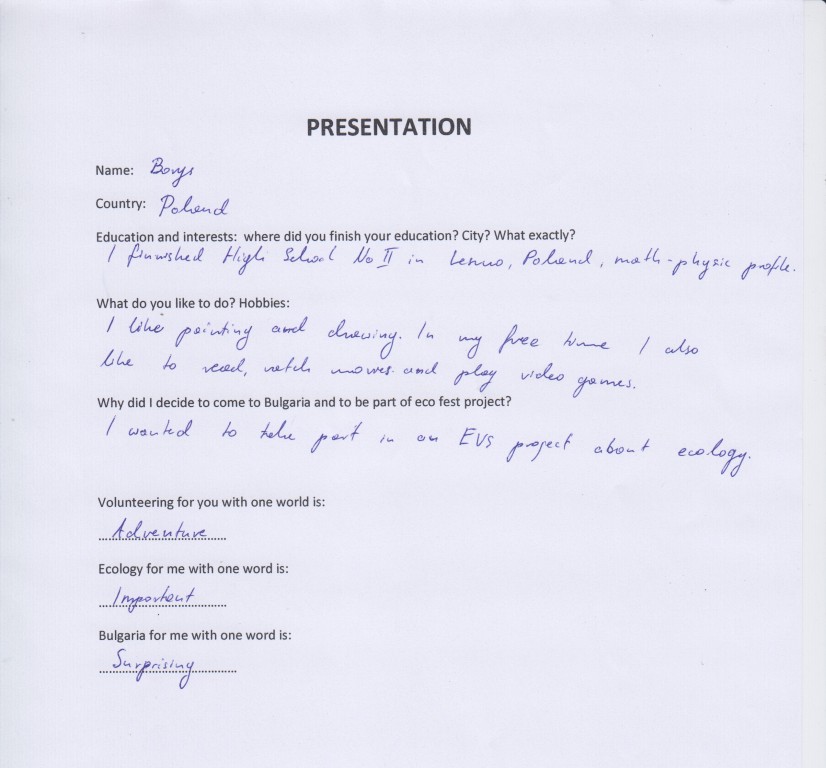 PRESENTATION
Name: Borys
Country: Poland
Education and interests: where did you finish your education? City? What exactly?
I finnished High School No II in Leszno, Poland, math-physic profile.
What do you like to do? Hobbies:
I like painting and drawing. In my free time I also
like to read, watch movies and play video games.
Why did I decide to come to Bulgaria and to be part of eco fest project?
I wanted to take part in an EVS project about ecology.
Volunteering for you with one world is:
Adventure
Ecology for me with one word is:
Important
Bulgaria for me with one word is:
Surprising